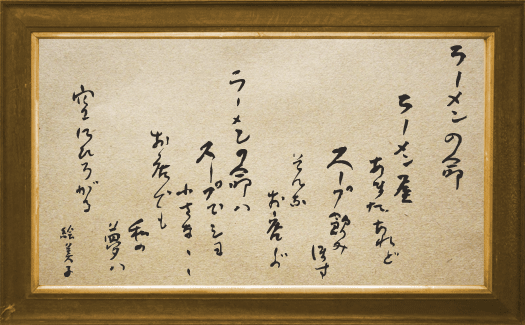 ラーメンの命
ラーメン屋
あまたあれど
スープ飲み
ほす
そんな
お店が
ラーメンの命ハ
スープでショ
小さな、、
お店でも
私の
夢ハ
空にひろがる
絵美子